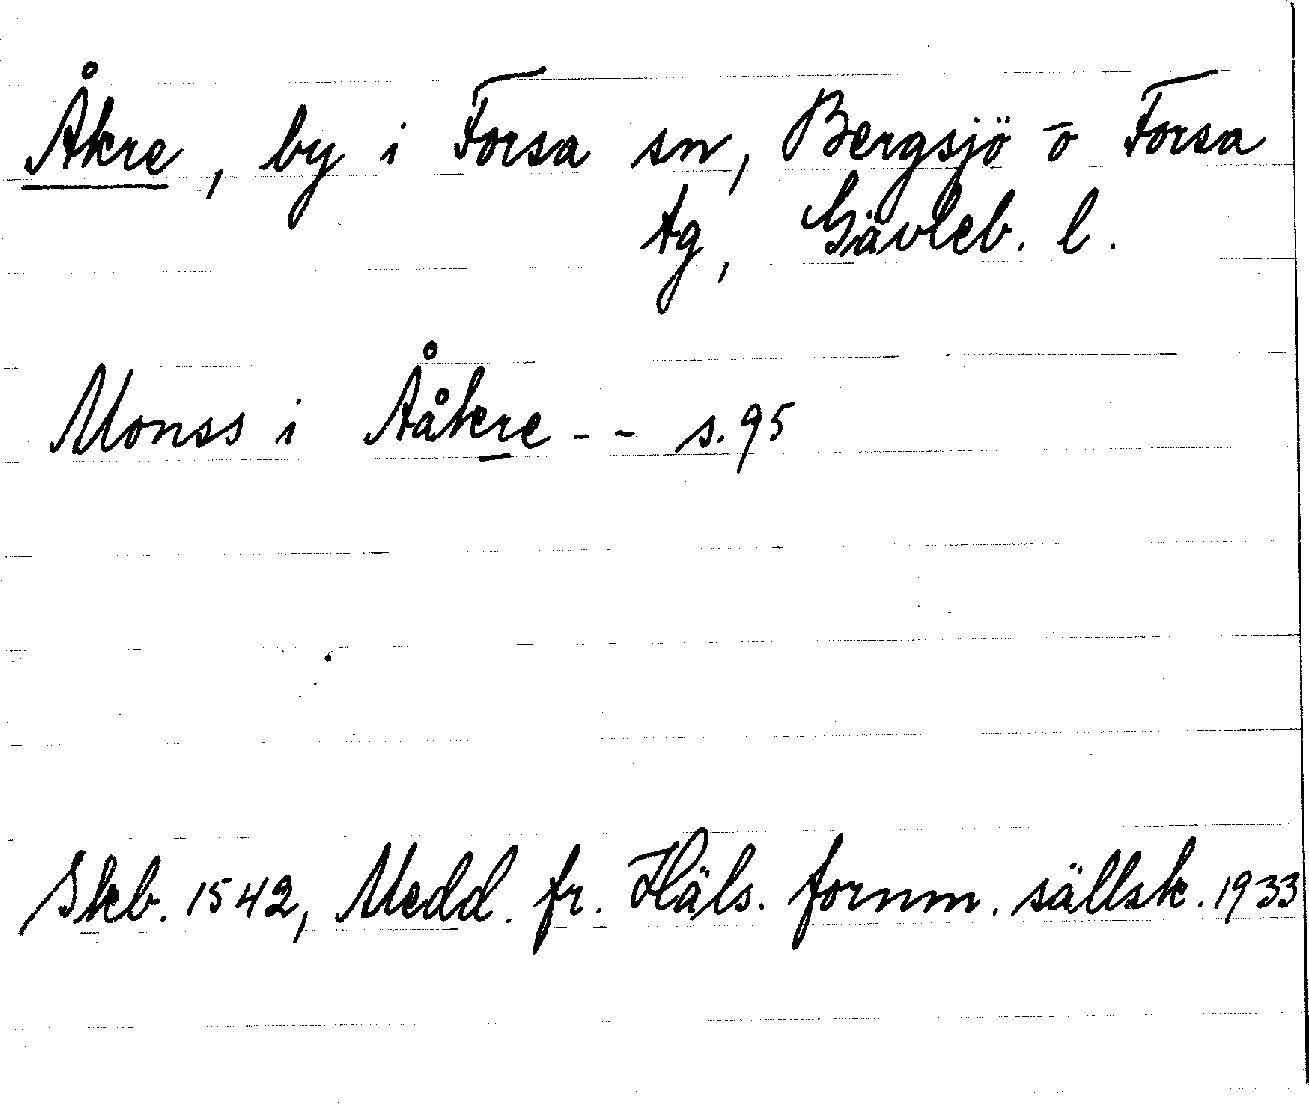 Åkre, by i Forsa sn, Bergsjö o Forsa
tg, Gävleb. l.
Monss i Ååkre - - s. 95
Skb. 1542, Medd. fr. Häls. fornm. sällsk. 1933